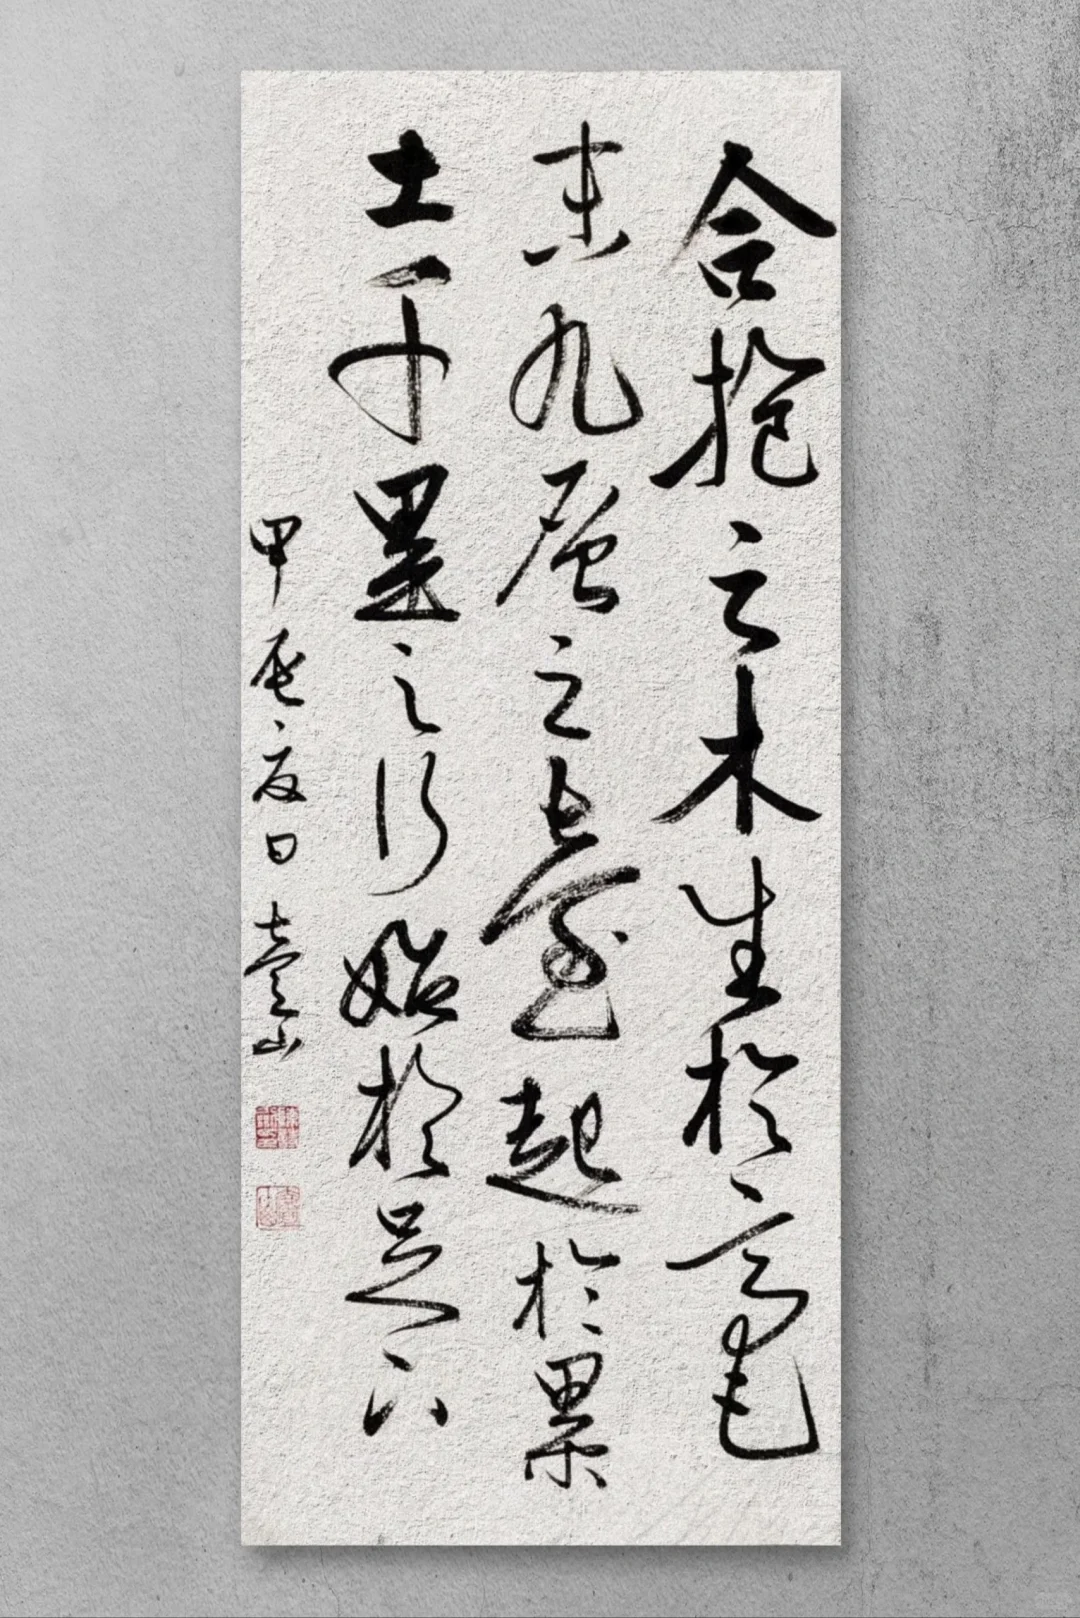 合抱之木生於毫
末九層之臺起於累
土千里之行始於足下
甲辰夏日山